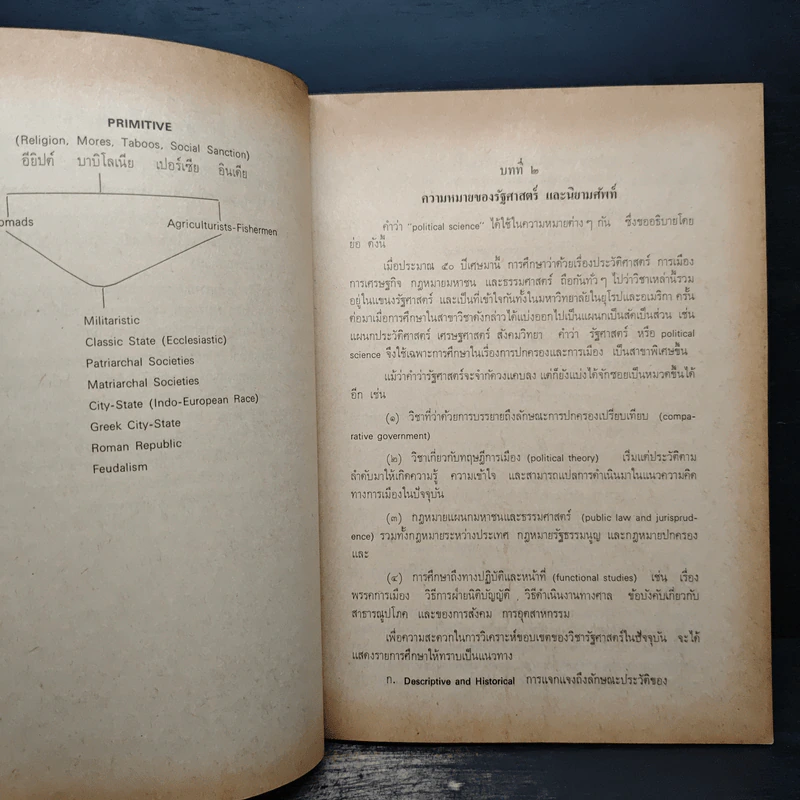 PRIMITIVE
(Religion, Mores, Taboos, Social Sanction)
อียิปต์ บาบิโลเนีย เปอร์เซีย อินเดีย
omads Agriculturists-Fishermen
Militaristic
Classic State (Ecclesiastic)
Patriarchal Societies
Matriarchal Societies
City-State (Indo-European Race)
Greek City-State
Roman Republic
Feudalism
บทที่ ๒
ความหมายของรัฐศาสตร์ และนิยามศัพท์
คำว่า "political science" ได้ใช้ในความหมายต่าง ๆ กัน ซึ่งขออธิบายโดย
ย่อ ดังนี้
เมื่อประมาณ ๕๐ ปีเศษมานี้ การศึกษาว่าด้วยเรื่องประวัติศาสตร์ การเมือง
การเศรษฐกิจ กฎหมายมหาชน และธรรมศาสตร์ ถือกันทั่ว ๆ ไปว่าวิชาเหล่านี้รวม
อยู่ในแขนงรัฐศาสตร์ และเป็นที่เข้าใจกันทั้งในมหาวิทยาลัยในยุโรปและอเมริกา ครั้น
ต่อมาเมื่อการศึกษาในสาขาวิชาดังกล่าวได้แบ่งออกไปเป็นแผนกเป็นสัดเป็นส่วน เช่น
แผนกประวัติศาสตร์ เศรษฐศาสตร์ สังคมวิทยา คำว่า รัฐศาสตร์ หรือ political
science จึงใช้เฉพาะการศึกษาในเรื่องการปกครองและการเมือง เป็นสาขาพิเศษขึ้น
แม้ว่าคำว่ารัฐศาสตร์จะจำกัดวงแคบลง แต่ก็ยังแบ่งได้จักซอยเป็นหมวดขึ้นได้
อีก เช่น
(๑) วิชาที่ว่าด้วยการบรรยายถึงลักษณะการปกครองเปรียบเทียบ (compa-
rative government)
(๒) วิชาเกี่ยวกับทฤษฎีการเมือง (political theory) เริ่มแต่ประวัติตาม
ลำดับมาให้เกิดความรู้ ความเข้าใจ และสามารถแปลการดำเนินมาในแนวความคิด
ทางการเมืองในปัจจุบัน
(๓) กฎหมายแผนกมหาชนและธรรมศาสตร์ (public law and jurisprud-
ence) รวมทั้งกฎหมายระหว่างประเทศ กฎหมายรัฐธรรมนูญ และกฎหมายปกครอง
และ
(๔) การศึกษาถึงทางปฏิบัติและหน้าที่ (functional studies) เช่น เรื่อง
พรรคการเมือง วิธีการฝ่ายนิติบัญญัติ วิธีดำเนินงานทางศาล ข้อบังคับเกี่ยวกับ
สาธารณูปโภค และของการสังคม การอุตสาหกรรม
เพื่อความสะดวกในการวิเคราะห์ขอบเขตของวิชารัฐศาสตร์ในปัจจุบัน จะได้
แสดงรายการศึกษาให้ทราบเป็นแนวทาง
ก. Descriptive and Historical การแจกแจงถึงลักษณะประวัติของ